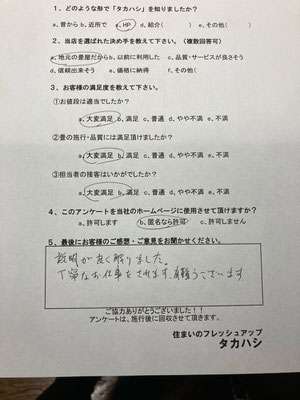 1、どのような形で「タカハシ」を知りましたか？
a、昔から b、近所で c、HP d、紹介( ) e、その他( )
2、当店を選ばれた決め手を教えて下さい。（複数回答可）
a、地元の畳屋だから b、以前に利用した c、品質・サービスが良さそう
d、信頼出来そう e、価格に納得 f、その他( )
3、お客様の満足度を教えて下さい。
①お値段は適当でしたか？
a、大変満足 b、満足 c、普通 d、やや不満 e、不満
②畳の施行・品質には満足頂けましたか？
a、大変満足 b、満足 c、普通 d、やや不満 e、不満
③担当者の接客はいかがでしたか？
a、大変満足 b、満足 c、普通 d、やや不満 e、不満
4、このアンケートを当社のホームページに使用させて頂けますか？
a、許可します b、匿名なら許可 c、許可しません
5、最後にお客様のご感想・ご意見をお聞かせください。
説明が良く解りました。
丁寧なお仕事をされます、有難うございます
ご協力ありがとうございました！！
アンケートは、施行後に回収させて頂きます。
住まいのフレッシュアップ
タカハシ